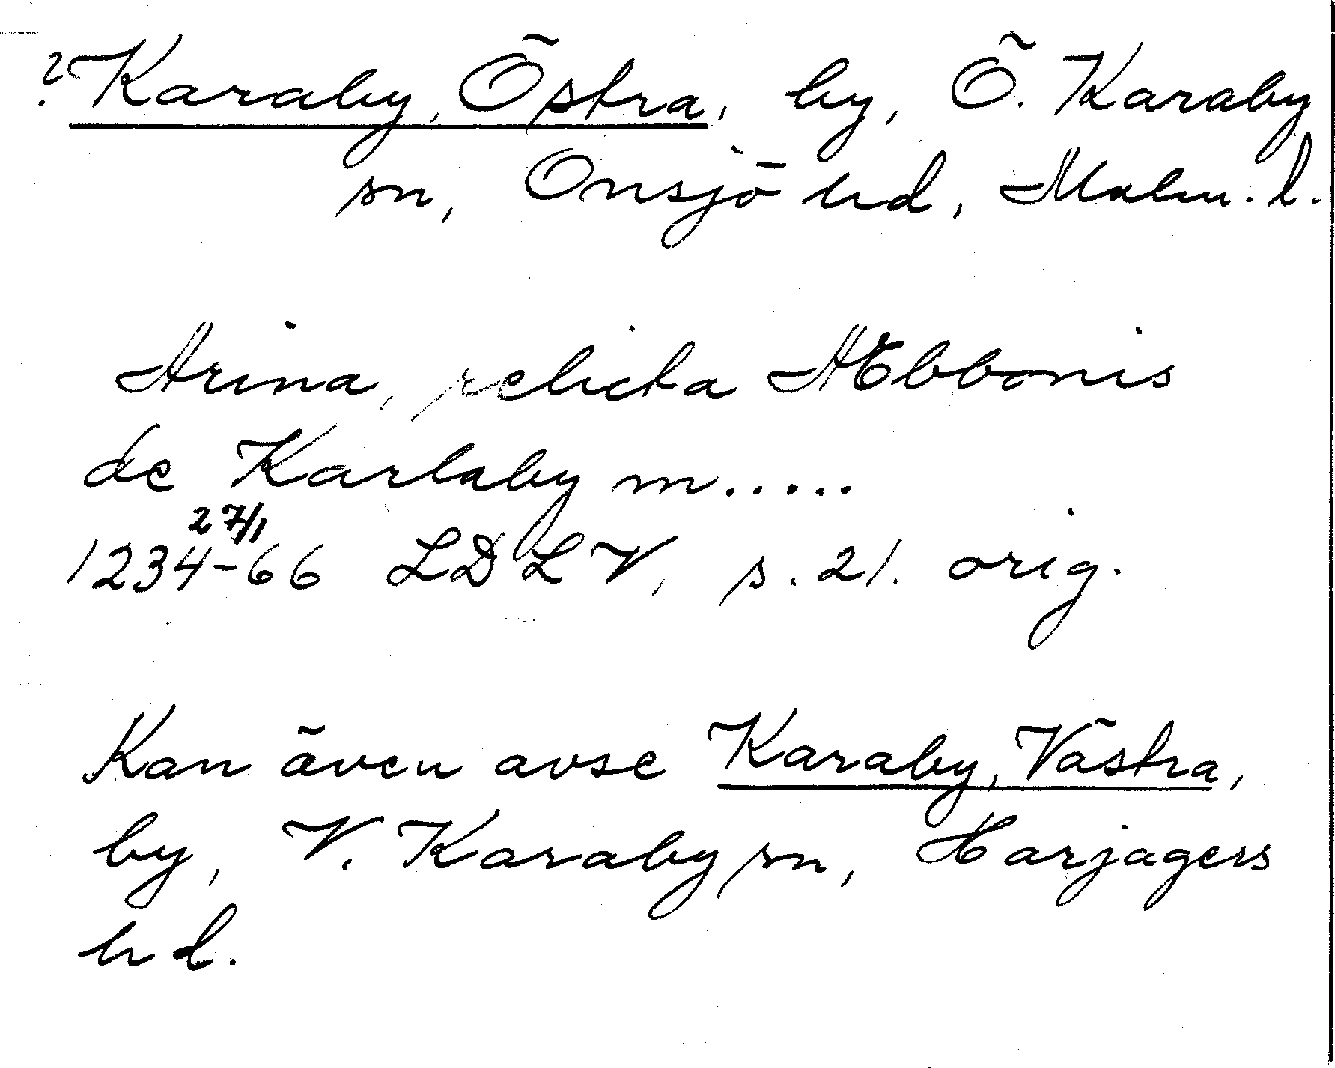 ? Karaby, Östra, by, Ö. Karaby
sn, Onsjö hd, Malm. l.
Arina, relicta Ebbonis
de Karlaby m.....
27/1
1234-66 LDLV, s. 21. orig.
Kan även avse Karaby, Västra,
by, V. Karaby sn, Harjagers
hd.